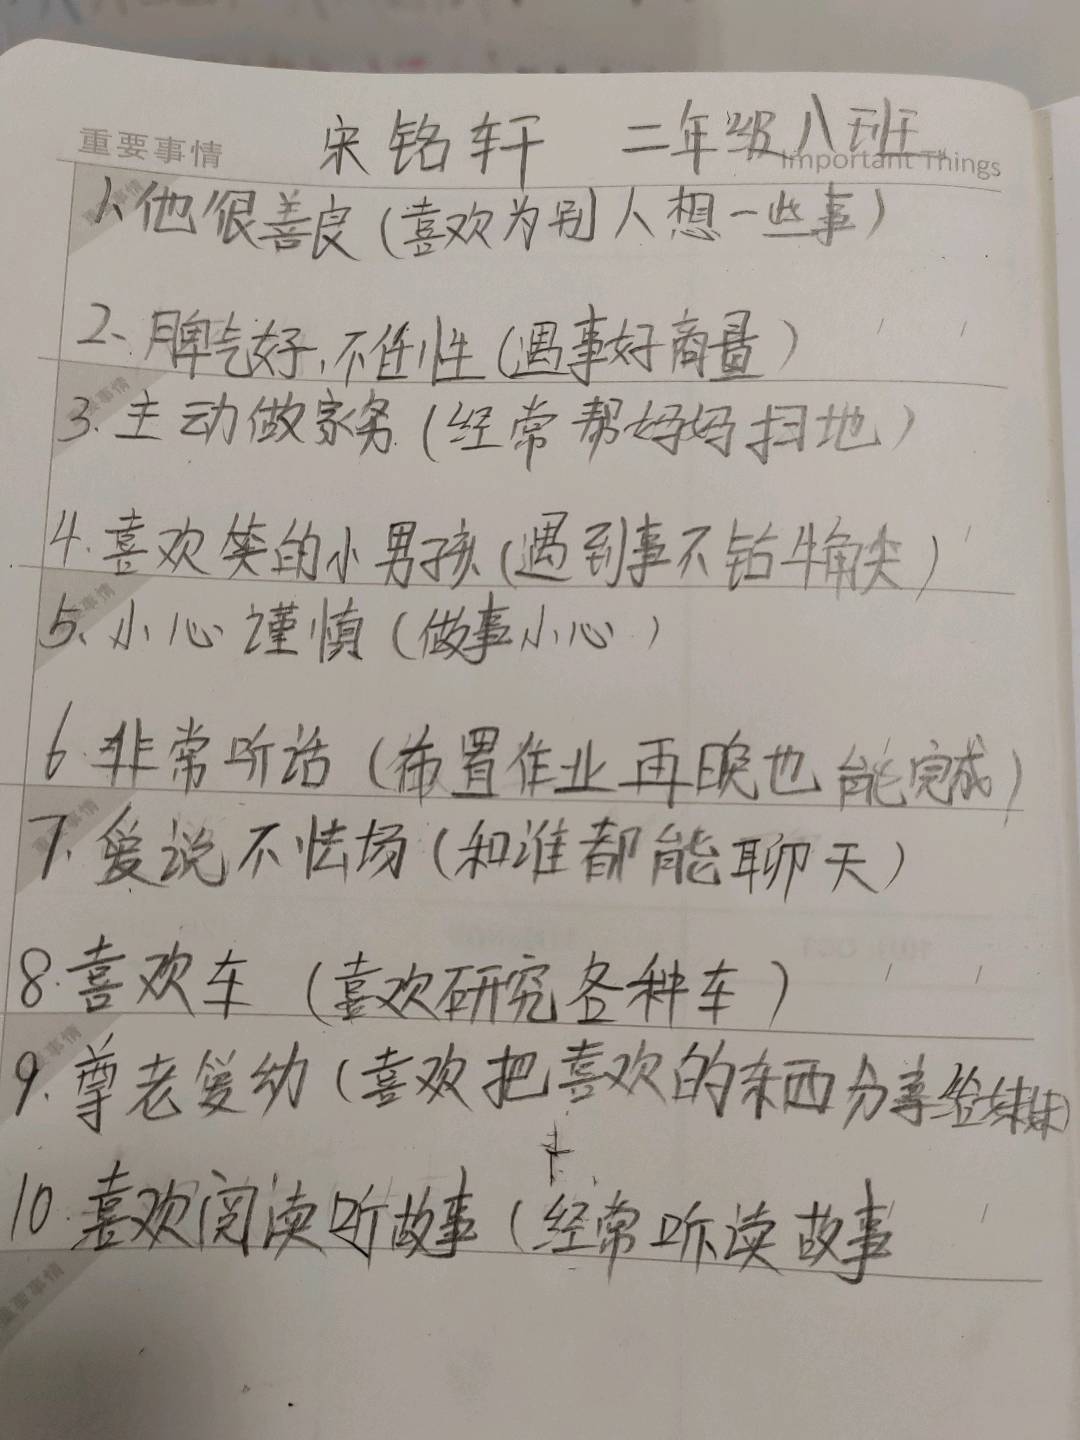 重要事情 宋铭轩 二年级八班
Important Things
1、他很善良(喜欢为别人想一些事)
2、脾气好,不任性(遇事好商量)
3.主动做家务(经常帮妈妈扫地)
4.喜欢笑的小男孩(遇到事不钻牛角尖)
5、小心谨慎(做事小心)
6.非常听话(布置作业再晚也能完成)
7.爱说不怯场(和谁都能聊天)
8.喜欢车(喜欢研究各种车)
9.尊老爱幼(喜欢把喜欢的东西分享给妹妹)
10.喜欢阅读听故事(经常听读故事